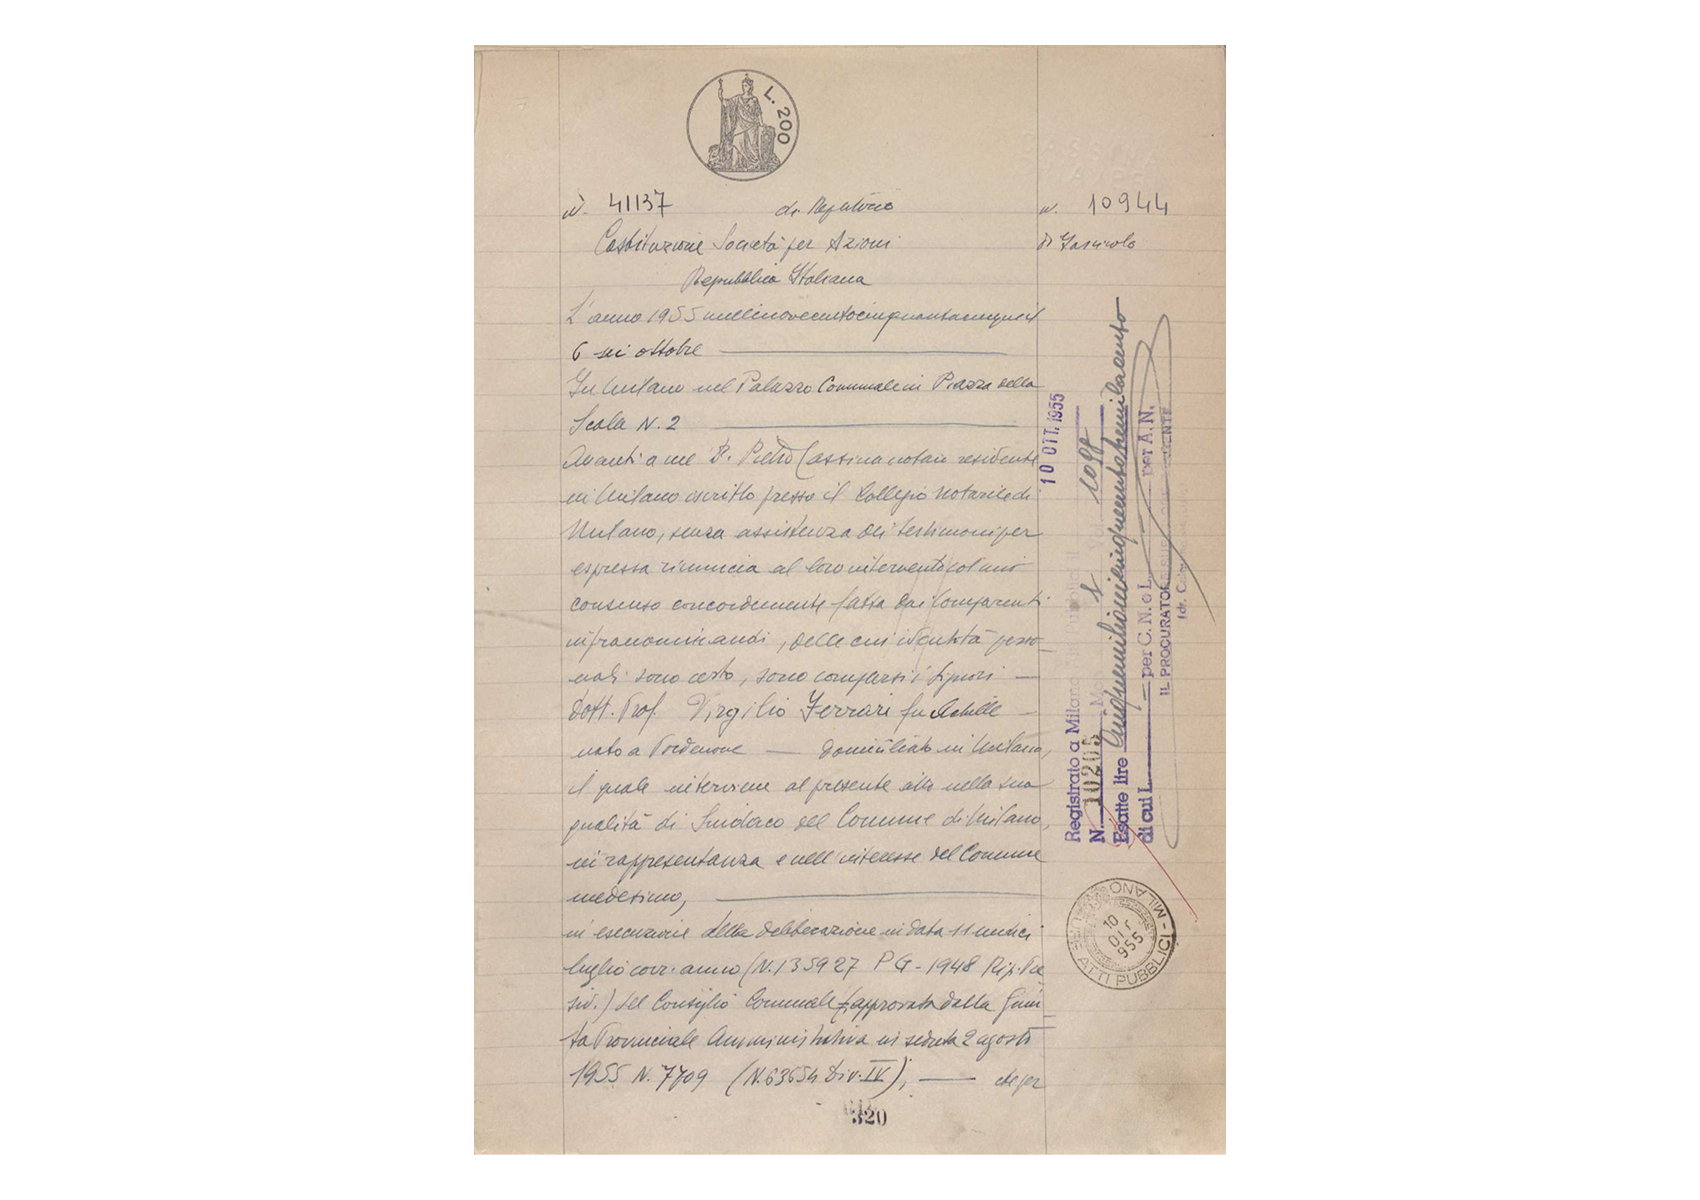 L. 200
N. 41137 di Repertorio N. 10944
Costituzione Società per Azioni di Fascicolo
Repubblica Italiana
L'anno 1955 millenovecentocinquantacinque il
6 sei ottobre
In Milano nel Palazzo Comunale in Piazza della
Scala N. 2
Avanti a me D. Pietro Cassina notaio residente
in Milano iscritto presso il Collegio Notarile di
Milano, senza assistenza dei testimoni per
espressa rinuncia al loro intervento col mio
consenso concordemente fatta dai comparenti
infranominandi, delle cui identità perso-
nali sono certo, sono comparsi i Signori
Dott. Prof. Virgilio Ferrari fu Achille
nato a Pordenone domiciliato in Milano,
il quale interviene al presente atto nella sua
qualità di Sindaco del Comune di Milano,
in rappresentanza e nell'interesse del Comune
medesimo,
in esecuzione della deliberazione in data 11 undici
luglio corr. anno (N. 135927 PG - 1948 Rip.
) del Consiglio Comunale approvata dalla Giun-
ta Provinciale Amministrativa in seduta 2 agosto
1955 N. 7709 (N. 63654 Div. IV), che per
320
10 OTT. 1955
Registrato a Milano Atti Pubblici il
N. 10205 Mod. I Vol. 1099
Esatte lire cinquemilionicinquecentotremilacento
di cui L. per C. N. e L. per A. N.
IL PROCURATORE
MILANO - ATTI PUBBLICI
10 OTT 955